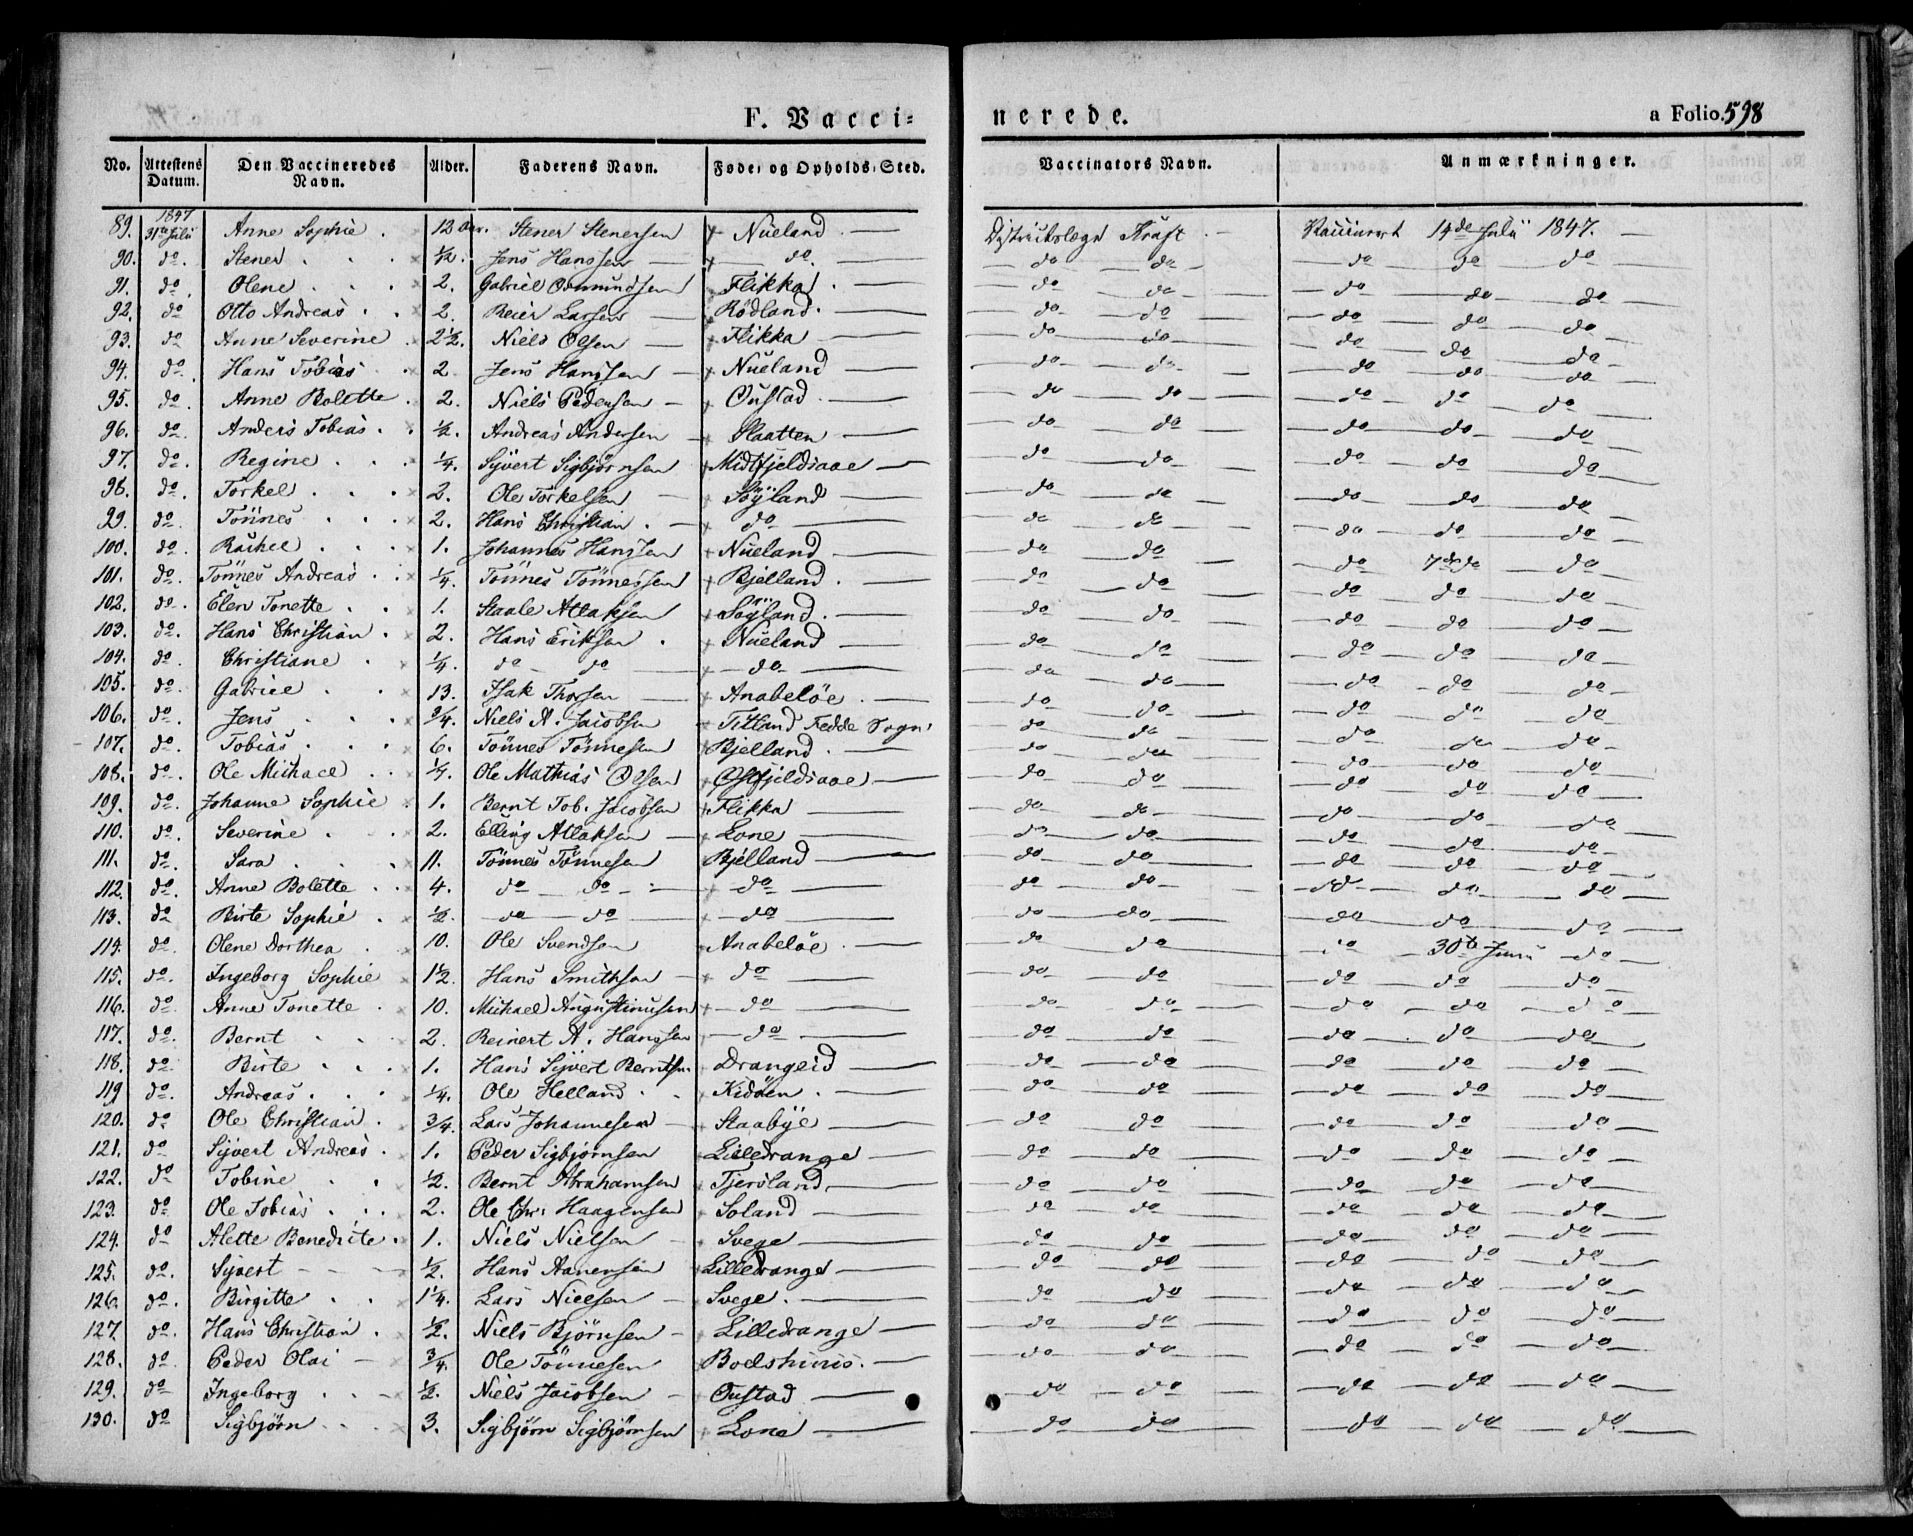 F. Vacci= nerede. a Folio. 598
No. Attestens Datum. Den Vaccineredes Navn. Alder. Faderens Navn. Føde- og Opholds-Sted. Vaccinators Navn. Anmærkninger.
1847
89. 31te Juli Anne Sophie 12 Aar. Stener Stenersen Nüeland Districtslæge Kraft Vaccineret 14de Juli 1847.
90. do. Stener 1/2. Jens Hanssen do. do do do do do
91. do. Olene 2. Gabriel Flikka do do do do do
92. do Otto Andreas 2. Reier Larsen Rödland do do do do do
93. do Anne Severine 2 1/2. Niels Olsen Flikka do do do do do
94. do. Hans Tobias 2 Jens Hanssen Nüeland do do do do do
95. do. Anne Bolette 2. Niels Pedersen Oustad do do do do do
96. do. Anders Tobias 1/2. Andreas Andersen Slaatten do do do do do
97. do. Regine 1/4. Syvert Sigbjørnsen Midtfjeldsaae do do do do do
98. do. Torkel 2. Ole Torkelsen Söyland do do do do do
99. do. Tönnes 2. Hans Christian do do do do do do
100. do. Rachel 1. Johannes Hanssen Nüeland do do do 7de do do
101. do. Tönnes Andreas 1/4. Tönnes Tönnessen Bjelland do do do do do
102. do. Elen Tonette 1. Staale Atlaksen Söyland do do do do do
103. do. Hans Christian 2. Hans Eriksen Nüeland do do do do do
104. do. Christiane 1/4. do do do do do do do do
105. do. Gabriel 13. Isak Thorsen Anabelöe do do do do do
106. do. Jens 3/4. Niels A. Jacobsen Titland Fedde Sogn do do do do do
107. do. Tobias 6. Tönnes Tönnesen Bjelland do do do do do
108. do. Ole Michael 1/4. Ole Mathias Olsen Østfjeldsaae do do do do do
109. do. Johanne Sophie 1. Bernt Tob. Jacobsen Flikka do do do do do
110. do. Severine 2. Elling Atlaksen Lone do do do do do
111. do. Sara 11. Tönnes Tönnesen Bjelland do do do do do
112. do. Anne Bolette 4. do do do do do do do do
113. do Birte Sophie 1/2. do do do do do do do do
114. do. Olene Dorthea 10. Ole Svendsen Anabelöe do do do 30te Juni do
115. do. Ingeborg Sophie 1 1/2. Hans Smithsen do do do do do do
116. do Anne Tonette 10. Michael Augustinusen do do do do do do
117. do. Bernt 2. Reinert A. Hanssen do do do do do do
118. do Birte 1. Hans Syvert Berntsen Drangeid do do do do do
119 do. Andreas 1/4. Ole Helland Kidöen do do do do do
120. do Ole Christian 3/4. Lars Johannesen Staabye do do do do do
121. do Syvert Andreas 1. Peder Sigbjørnsen Lilledrange do do do do do
122. do Tobine 1/2. Bernt Abrahamsen Tjersland do do do do do
123. do Ole Tobias 2. Ole Chr. Haagensen Soland do do do do do
124. do Alette Benedicte 1. Niels Nielsen Svege do do do do do
125. do. Syvert 1/2. Hans Aanensen Lilledrange do do do do do
126. do. Birgitte 1 1/4. Lars Nielsen Svege do do do do do
127. do. Hans Christian 1/2. Niels Bjørnsen Lilledrange do do do do do
128. do. Peder Olai 3/4. Ole Tönnesen do do do do do
129. do Ingeborg 1/2. Niels Jacobsen Oustad do do do do do
130. do Sigbjørn 3. Sigbjørn Sigbjørnsen Lone do do do do do